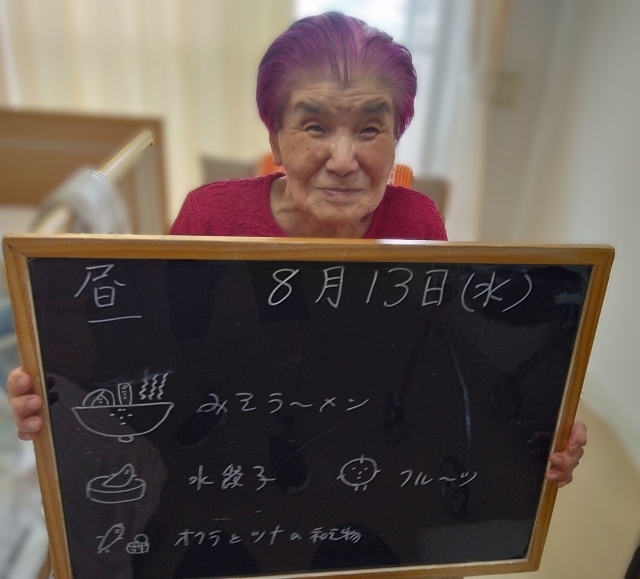 昼 8月13日(水)
みそラーメン
水餃子 フルーツ
オクラとツナの和え物